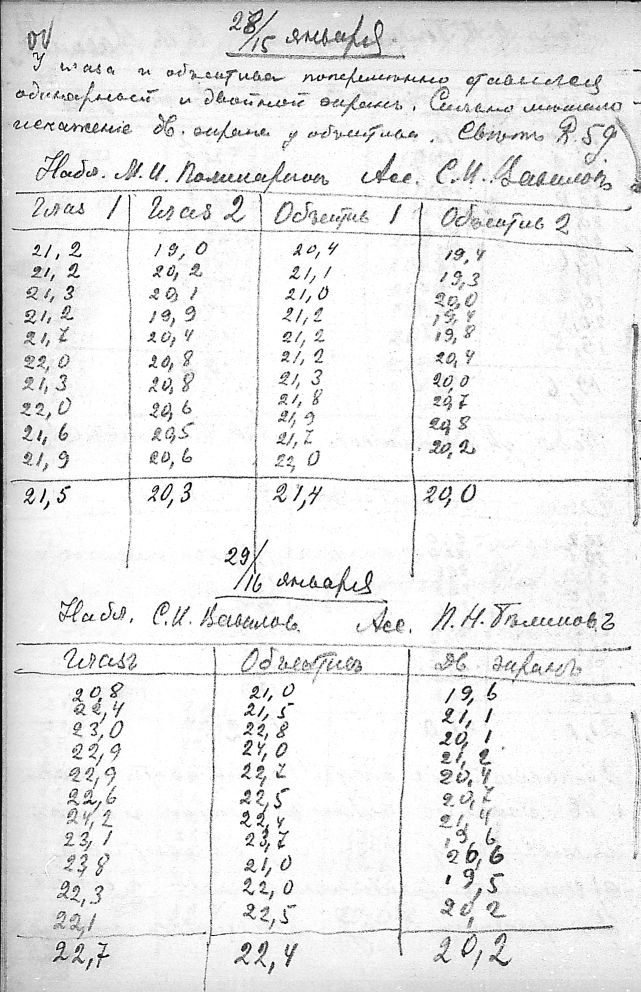 28/15 января
У глаза и объектива попеременно ставился
одинарный и двойной экранъ. Сильно мешало
искажение дв. экрана у объектива. Светъ R. 59
Набл. М. И. Поликарповъ Асс. С. И. Вавиловъ
Глаз 1 Глаз 2 Объектив 1 Объектив 2
21,2 19,0 20,4 19,4
21,2 20,2 21,1 19,3
21,3 20,1 21,0 20,0
21,2 19,9 21,2 19,4
21,7 20,4 21,2 19,8
22,0 20,8 21,2 20,4
21,3 20,8 21,3 20,0
22,0 20,6 21,8 20,7
21,6 20,5 21,9 20,8
21,9 20,6 21,7 20,2
22,0
21,5 20,3 21,4 20,0
29/16 января
Набл. С. И. Вавилов Асс. П. Н. Беликовъ
Глазъ Объективъ Дв. экранъ
20,8 21,0 19,6
22,4 21,5 21,1
23,0 22,8 20,1
22,9 24,0 21,2
22,9 22,7 20,4
22,6 22,5 20,7
24,2 22,4 21,4
23,1 23,7 19,6
23,8 21,0 20,6
22,3 22,0 19,5
22,1 22,5 20,2
22,7 22,4 20,2